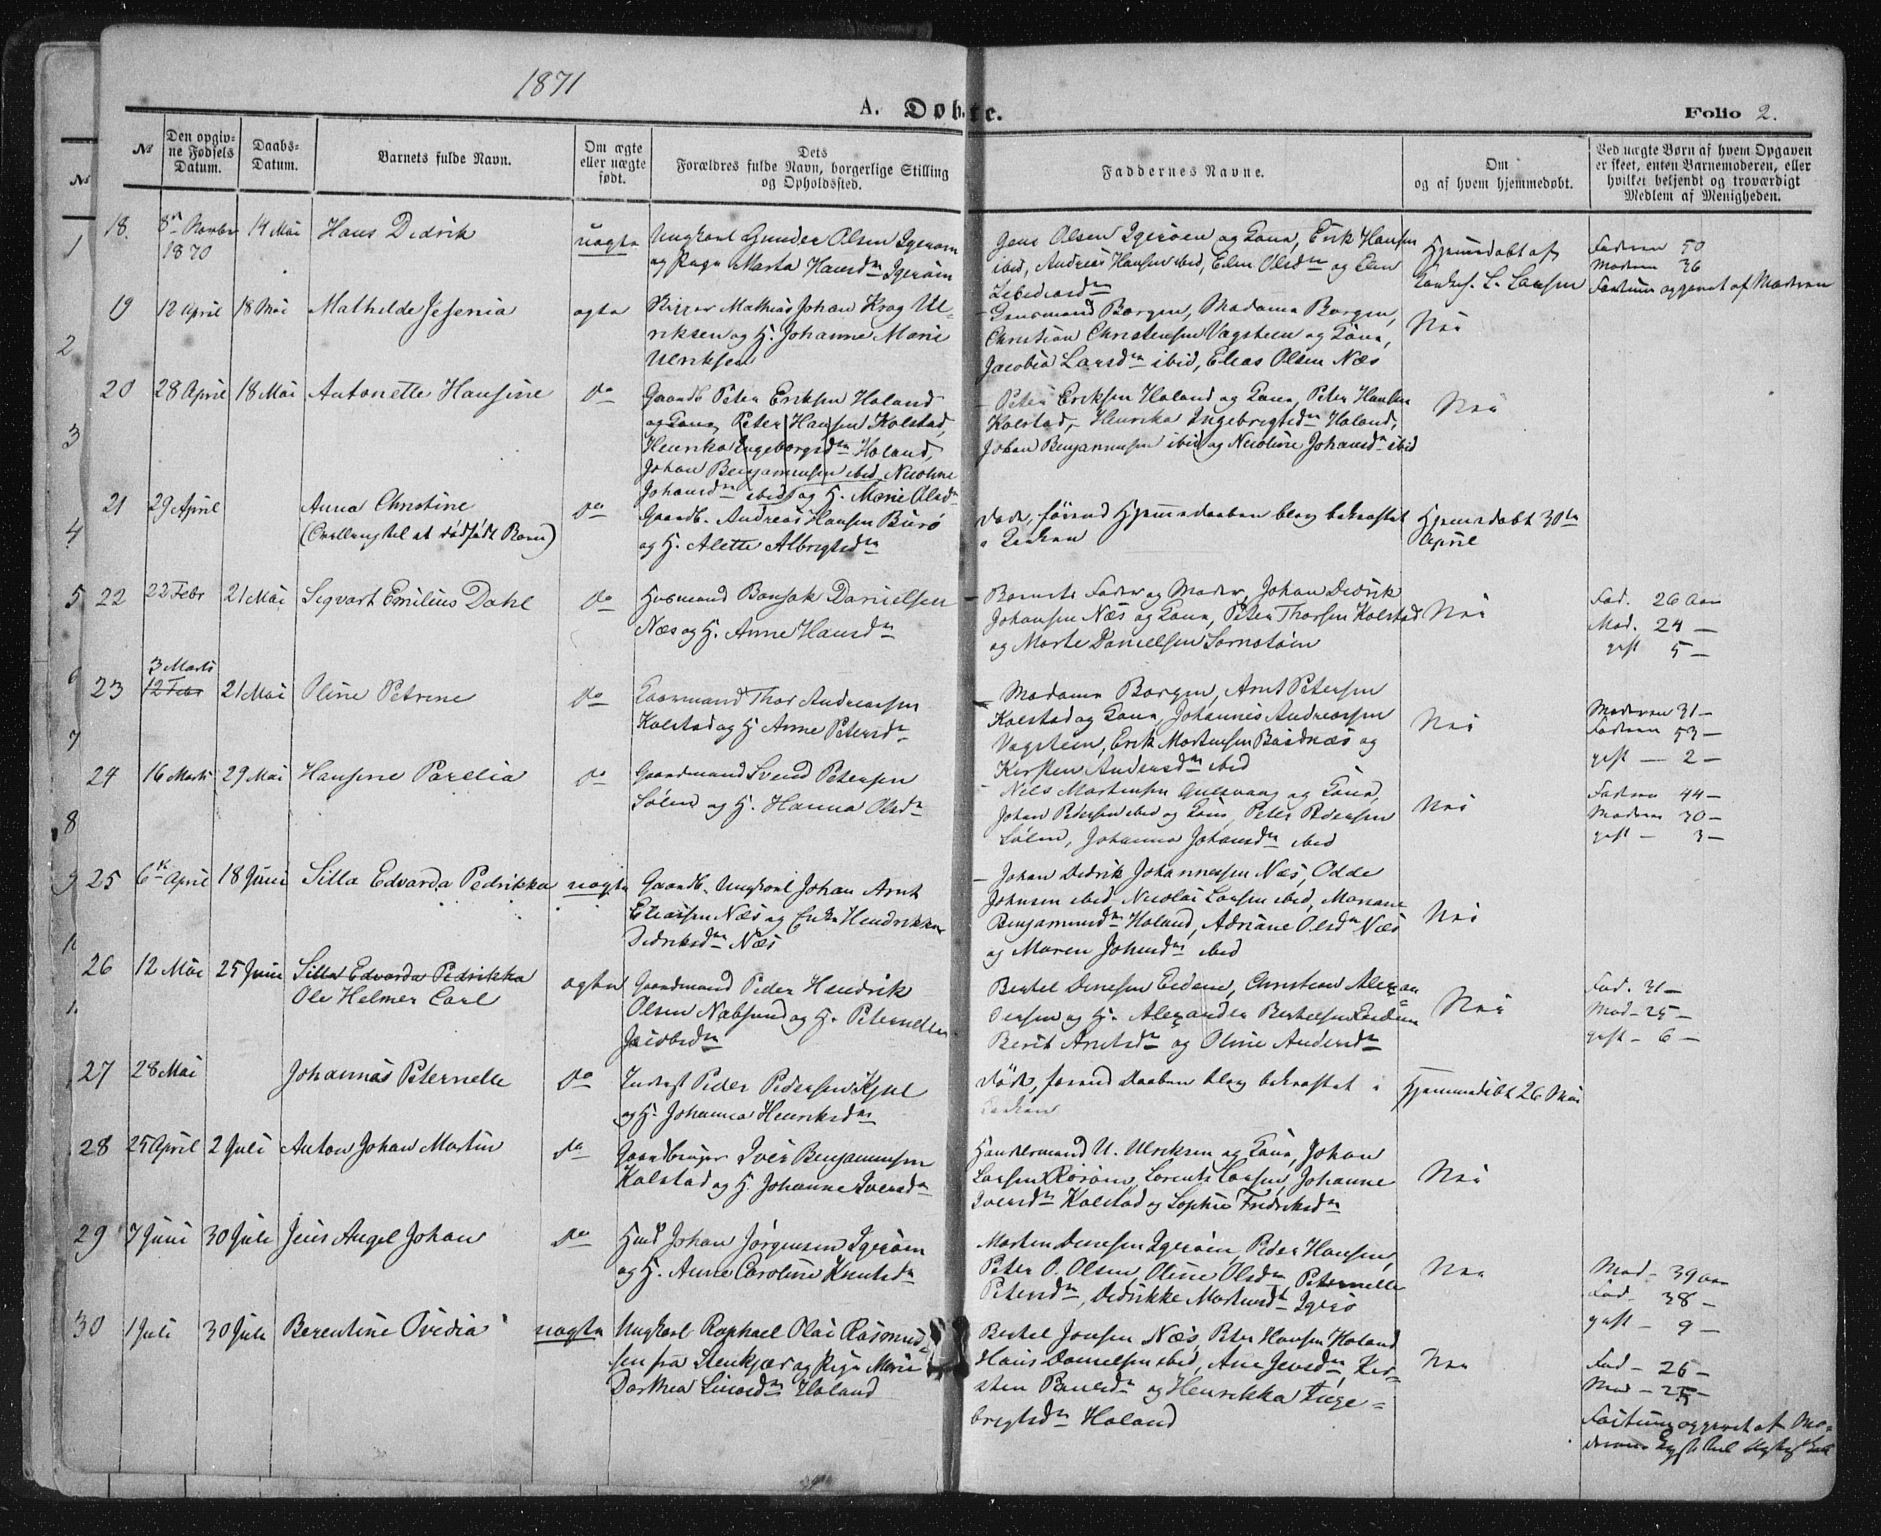 1871
A. Døbte.
Folio 2.
№
№
Den opgiv-
ne Fødsels
Datum.
Daabs-
Datum.
Barnets fulde Navn.
Om ægte
eller uægte
født.
Dets
Forældres fulde Navn, borgerlige Stilling
og Opholdssted.
Faddernes Navne.
Om
og af hvem hjemmedøbt.
Ved uægte Børn af hvem Opgaven
er skeet, enten Barnemoderen, eller
hvilket bekjendt og troværdigt
Medlem af Menigheden.
18. 14 Mai Hans Didrik uægte Ungkarl Gunder Olsen Igerøen
1870
og Pige Marta Hansdn Igerøen
Jens Olsen Igerøen og Kona, Erik Hansen
ibid, Andreas Hansen ibid, Elen Olsdn og Elen
Hjemmedøbt af
L. Larsen
Faderen 50
Moderen 36
opgivet af Moderen
19 12 April 18 Mai Mathilde Jesenia ægte Mathias Johan Krog Ul-
riksen og H. Johanne Marie
Ulriksen
Borgen, Madame Borgen,
Christian Christensen Vagsteen og Kona,
Jacobia Larsdn ibid, Elias Olsen Næs
Nei
20 28 April 18 Mai Antonette Hansine do Gaardb. Peter Eriksen Holand
og Kona, Peter Hansen Kolstad,
Henrika Ingeborgsdn Holand,
Johan Benjaminsen ibid, Nicoline
Johansdn ibid og H. Marie Olsdn
Peter Eriksen Holand og Kona, Peter Hansen
Kolstad, Henrika Ingebrigtsdn Holand,
Johan Benjaminsen ibid og Nicoline Johansdn ibid
Nei
21 29 April Anna Christine do Gaardb. Andreas Hansen Burø
(Tvilling til et dødfødt Barn)
og H. Alette Albrigtsdn
død, førend Hjemmedaaben blev bekræftet
i Kirken
Hjemmedøbt 30te
April
22 22 Febr 21 Mai Sigvart Emilius Dahl do Husmand Bonsak Danielsen
Næs og H. Anne Hansdn
Barnets Fader og Moder, Johan Didrik
Johansen Næs og Kona, Peter Thorsen Kolstad
og Marte Danielsen
Nei
Fad. 26 Aar
Mod. 24 —
gift 5 —
3 Marts
23 12 Febr 21 Mai Oline Petrine do Gaardmand Thor Andreassen
Kolstad og H. Anne Petersdn
Madame Borgen, Arnt Petersen
Kolstad og Kona, Johannes Andreassen
Vagsteen, Erik Mortensen og
Kirsten Andersdn ibid
Nei
Moderen 31 —
Faderen 53 —
gift — 2 —
24 16 Marts 29 Mai Hansine Parelia do Gaardmand Svend Petersen
Sølen og H. Hanna Olsdn
Nils Mortensen og Kona,
Johan Pedersen ibid og Kona, Peter Pedersen
Sølen, Johanna Johansdn ibid
Nei
Faderen 44 —
Moderen 30 —
gift — 3 —
25 6te April 18 Juni Silla Edvarda Pedrikka uægte Gaardb. Ungkarl Johan Arnt
Eliassen Næs og Enke Hendrikka
Didriksdn Næs
Johan Didrik Johannesen Næs, Odde
Johnsen ibid, Nicolai Larsen ibid, Mariane
Benjaminsdn Holand, Adriane Olsdn Næs
og Maren Johnsdn ibid
Nei
26 12 Mai 25 Juni Silla Edvarda Pedrikka ægte Gaardmand Peder Hendrik
Ole Helmer Carl
Olsen Næbsund og H. Peternelle
Jacobsdn
Bertel Densen Eidene, Christian Alexan
dersen og H. Alexander Bertelsen
Berit Arntsdn og Oline Andersdn
Nei
Fad. 31 —
Mod — 25 —
gift — 6 —
27 28 Mai Johannas Peternelle do Inderst Peder Pedersen
og H. Johanna Henriksdn
død, førend Daaben blev bekræftet i
Kirken
Hjemmedøbt 26 Mai
28 25 April 2 Juli Anton Johan Martin do Gaardbruger Iver Benjaminsen
Kolstad og H. Johanne Iversdn
Handelsmand U. Ulriksen og Kona, Johan
Larsen Rørøen, Lorents Larsen, Johanne
Iversdn Kolstad og Sophie Fredriksdn
Nei
29 7 Juni 30 Juli Jens Angel Johan do Husd Johan Jørgensen Igerøen
og H. Anne Caroline Knutsdn
Morten Densen Igerøen, Peder Hansen,
Peter O. Olsen, Oline Olsdn, Peternelle
Petersdn, Didrikke Mortensdn Igerø
Nei
Mod — 39 Aar
Fad — 38 —
gift — 9 —
30 1 Juli 30 Juli Berentine Ovidia uægte Ungkarl Raphael Olai Rasmus-
sen fra Stenkjær og Pige Marie
Dorthea Holand
Bertel Jonsen Næs, Peter Hansen Holand
Hans Danielsen ibid, Ane Jensdn, Kir-
sten Paulsdn og Henrikka Inge-
brigtsdn Holand
Nei
Fad — 26 —
Mod — 25 —
opgivet af Mo-
1
2
3
4
5
6
7
8
9